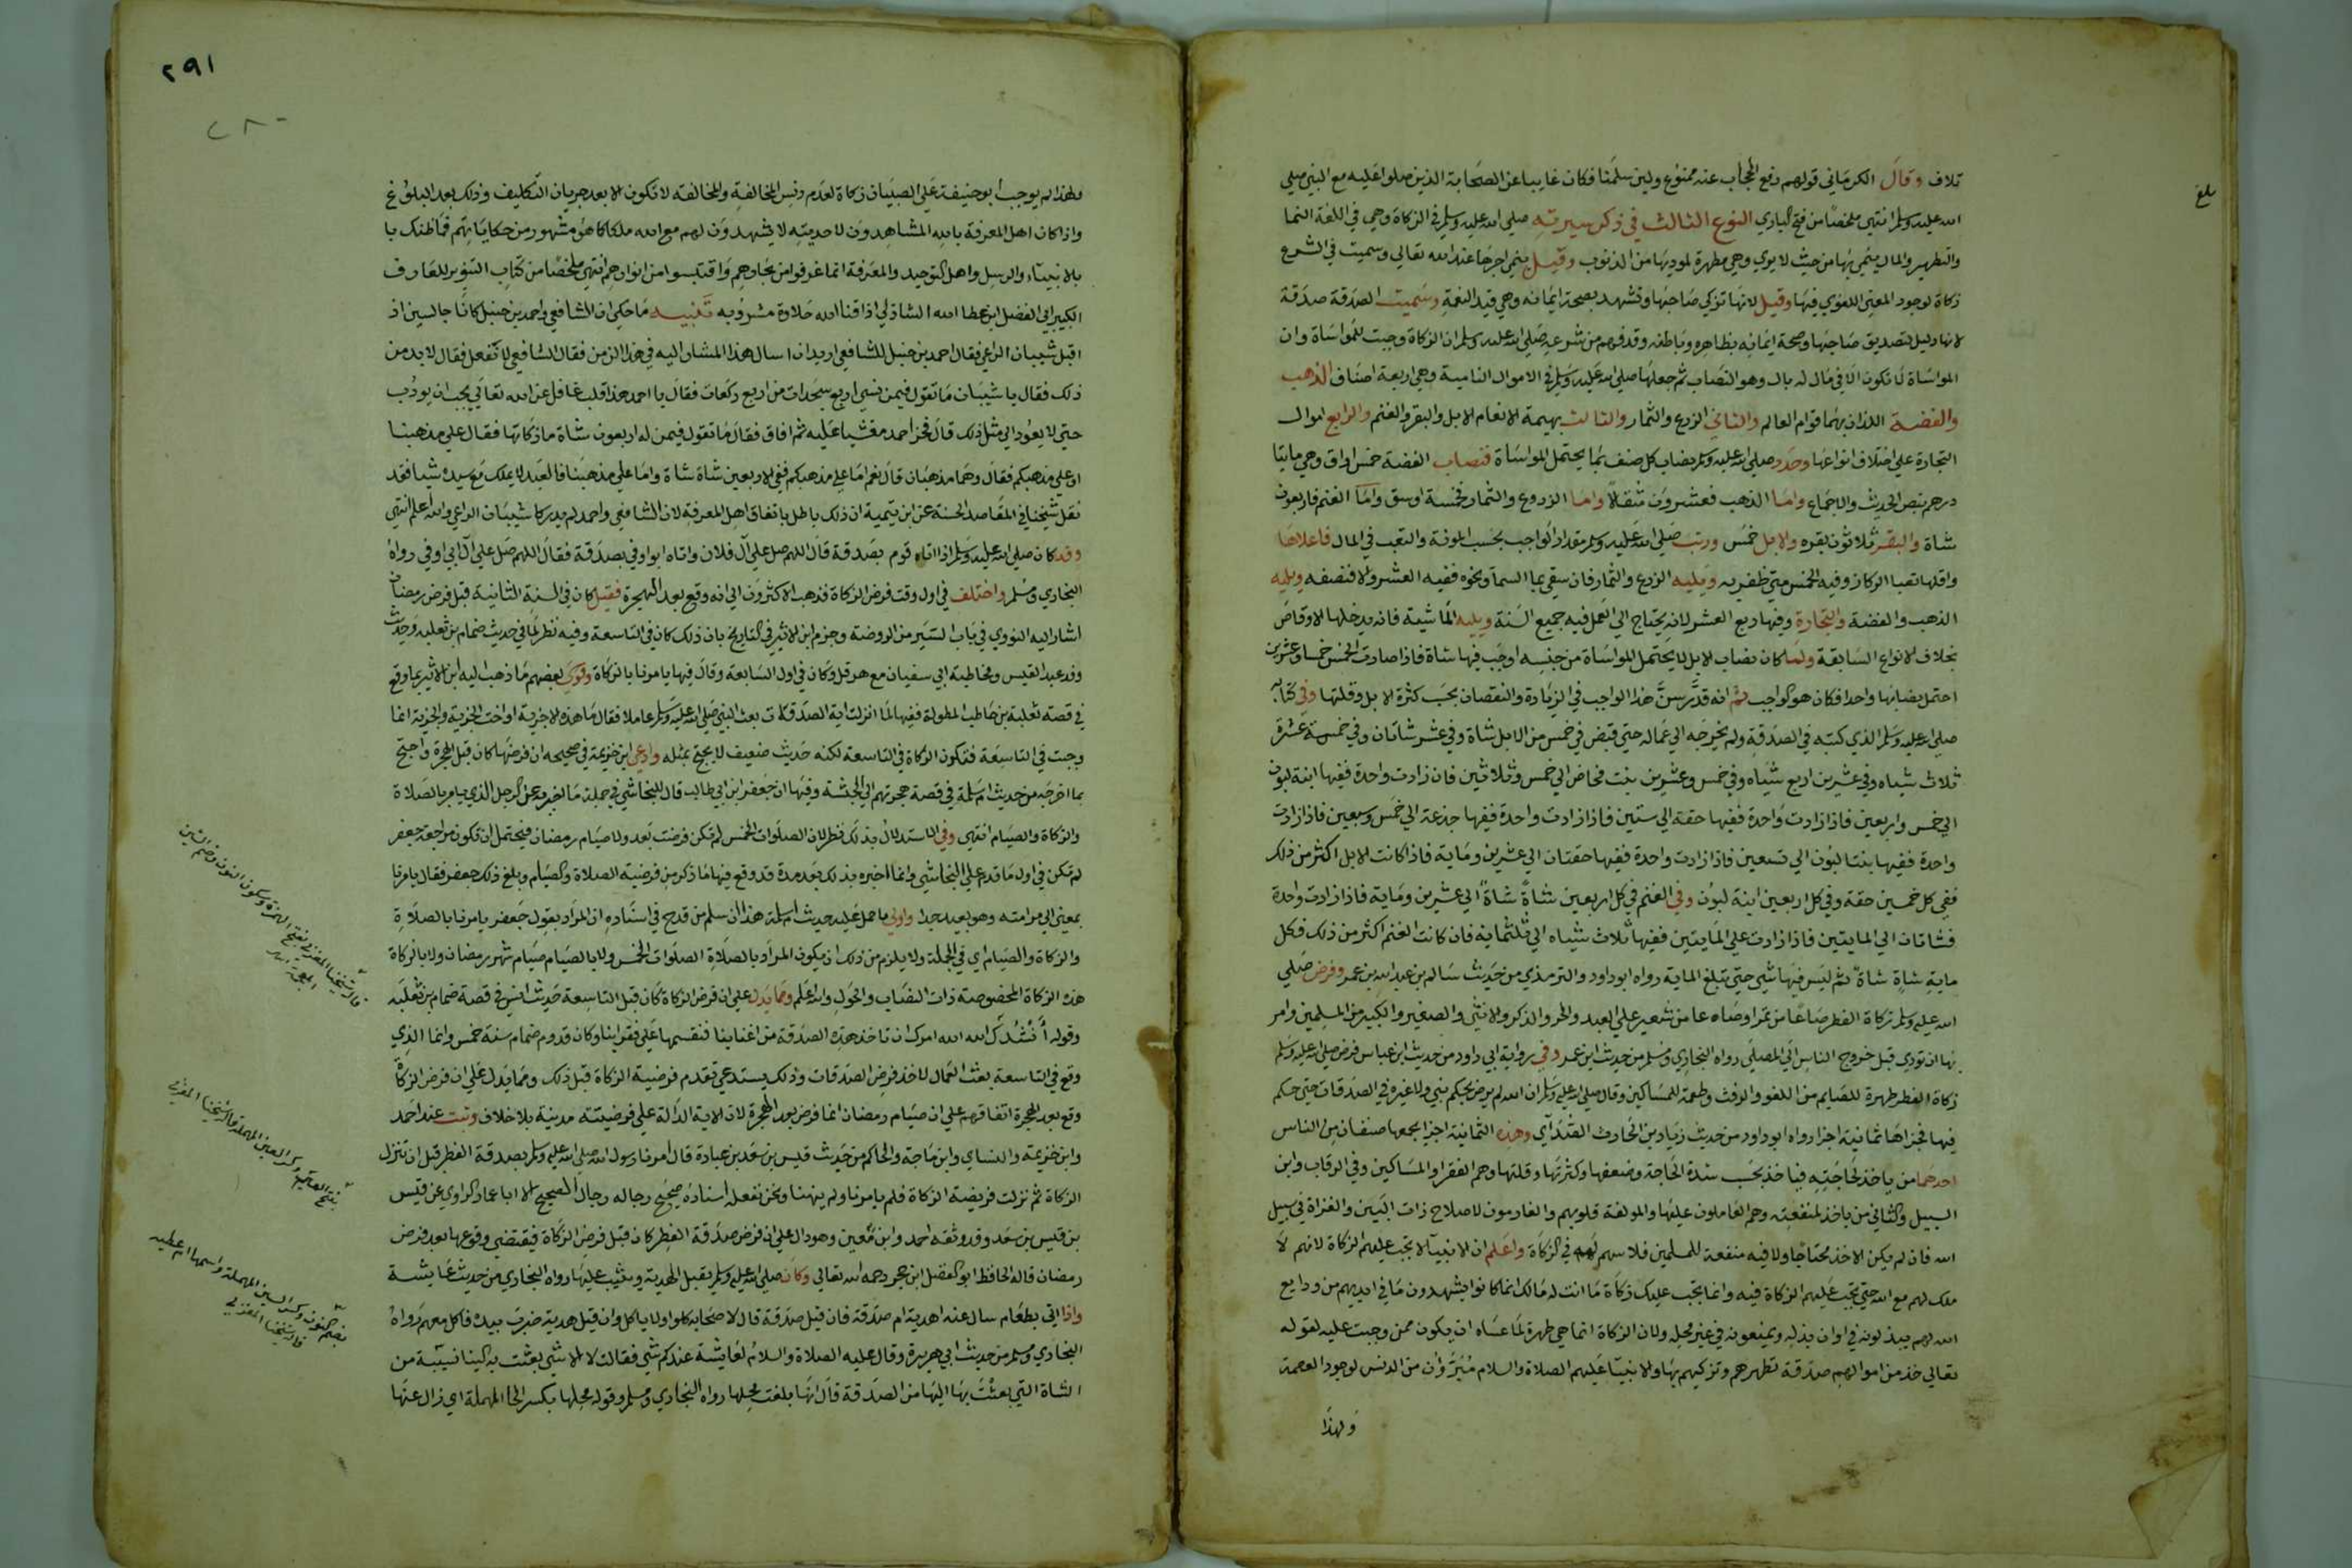 بلغ
تلاف وقال الكرماني قولهم رفع الحجاب عنه ممنوع ولين سلمنا فكان غايبا عن الصحابة الذين صلوا عليه مع النبي صلى
الله عليه وسلم انتهى ملخصا من فتح الباري النوع الثالث في ذكر سيرته صلى الله عليه وسلم في الزكاة وهي في اللغة النما
والتطهير والمال ينمي بها من حيث لا يري وهي مطهرة لموديها من الذنوب وقيل ينمي اجرها عند الله تعالي وسميت في الشرع
زكاة لوجود المعني اللغوي فيها وقيل لانها تزكي صاحبها وتشهد بصحة ايمانه وهي قيد النعمة وسميت الصدقة صدقة
لانها دليل لتصديق صاحبها وصحة ايمانه بظاهره وباطنه وقد فهم من شرعه صلى الله عليه وسلم ان الزكاة وجبت للمواساة وان
المواساة لا تكون الا في مال له بال وهو النصاب ثم جعلها صلى الله عليه وسلم في الاموال النامية وهي اربعة اصناف الذهب
والفضة اللذان بهما قوام العالم والثاني الزرع والثمار والثالث بهيمة الانعام الابل والبقر والغنم والرابع اموال
التجارة علي اختلاف انواعها وحدد صلى الله عليه وسلم نصاب كل صنف بما يحتمل المواساة فنصاب الفضة خمس اواق وهي مايتا
درهم بنص الحديث والاجماع واما الذهب فعشرون مثقالا واما الزروع والثمار فخمسة اوسق واما الغنم فاربعون
شاة والبقر ثلاثون بقره والابل خمس ورتب صلى الله عليه وسلم مقدار الواجب بحسب المونة والتعب في المال فاعلاها
واقلها تعبا الركاز وفيه الخمس متي ظفر به ويليه الزرع والثمار فان سقي بما السما ونحوه ففيه العشر والا فنصفه ويليه
الذهب والفضة والتجارة وفيها ربع العشر لانه يحتاج الي العمل فيه جميع السنة ويليه الماشية فانه يدخلها الاوقاص
بخلاف الانواع السابقة ولما كان نصاب الابل لا يحتمل المواساة من جنسه اوجب فيها شاة فاذا صارت الخمس خمسا وعشرين
احتمل نصابها واحدا فكان هو الواجب ثم انه قدر سن هذا الواجب في الزيادة والنقصان بحسب كثرة الابل وقلتها وفي كتابه
صلى الله عليه وسلم الذي كتبه في الصدقة ولم يخرجه الي عماله حتي قبض في خمس من الابل شاة وفي عشر شاتان وفي خمسة عشرة
ثلاث شياه وفي عشرين اربع شياه وفي خمس وعشرين بنت مخاض الي خمس وثلاثين فان زادت واحدة ففيها ابنة لبون
الي خمس واربعين فاذا زادت واحدة ففيها حقه الي ستين فاذا زادت واحدة ففيها جذعة الي خمس وسبعين فاذا زادت
واحدة ففيها بنتا لبون الي تسعين فاذا زادت واحدة ففيها حقتان الي عشرين ومايه فاذا كانت الابل اكثر من ذلك
ففي كل خمسين حقة وفي كل اربعين ابنة لبون وفي الغنم في كل اربعين شاة شاة الي عشرين ومايه فاذا زادت واحدة
فشاتان الي المايتين فاذا زادت علي المايتين ففيها ثلاث شياه الي ثلثماية فان كانت الغنم اكثر من ذلك فكل
ماية شاة شاة ثم ليس فيها شي حتي تبلغ الماية رواه ابوداود والترمذي من حديث سالم بن عبد الله بن عمر وفرض صلى
الله عليه وسلم زكاة الفطر صاعا من تمر او صاعا من شعير علي العبد والحر والذكر والانثي والصغير والكبير من المسلمين وامر
بها ان تودي قبل خروج الناس الي المصلي رواه البخاري ومسلم من حديث ابن عمر وفي رواية ابي داود من حديث ابن عباس فرض صلى الله عليه وسلم
زكاة الفطر طهرة للصايم من اللغو والرفث وطعمة للمساكين وقال صلى الله عليه وسلم ان الله لم يرض بحكم نبي ولا غيره في الصدقات حتي حكم
فيها فجزاها ثمانية اجزا رواه ابو داود من حديث زياد بن الحارث الصدآي وهذه الثمانية اجزا يجمعها صنفان من الناس
احدهما من ياخذ لحاجته فياخذ بحسب شدة الحاجة وضعفها وكثرتها وقلتها وهم الفقرا والمساكين وفي الرقاب وابن
السبيل والثاني من ياخذ لمنفعته وهم العاملون عليها والمولفة قلوبهم والغارمون لاصلاح ذات البين والغزاة في سبيل
الله فان لم يكن الاخذ محتاجا ولا فيه منفعة للمسلمين فلا سهم له في الزكاة واعلم ان الانبيآ لا تجب عليهم الزكاة لانهم لا
ملك لهم مع الله حتي تجب عليهم الزكاة فيه وانما يجب عليك زكاة ما انت له مالك انما كانوا يشهدون ما في ايديهم من ودايع
الله لهم يبذلونه في اوان بذله ويمنعونه في غير محله ولان الزكاة انما هي طهرة لما عساه ان يكون ممن وجبت عليه لقوله
تعالي خذ من اموالهم صدقة تطهرهم وتزكيهم بها والانبيآ عليهم الصلاة والسلام مبرؤون من الدنس لوجود العصمة
ولهذا
٢٩١
٢٨٠
ولهذا لم يوجب ابو حنيفة علي الصبيان زكاة لعدم دنس المخالفة والمخالفة لا تكون الا بعد جريان التكليف وذلك بعد البلوغ
واذا كان اهل المعرفة بالله المشاهدون لاحديته لا يشهدون لهم مع الله ملكا كما هو مشهور من حكاياتهم فما ظنك با
بالانبيآء والرسل واهل التوحيد والمعرفة انما غرفوا من بحارهم واقتبسوا من انوارهم انتهي ملخصا من كتاب التنوير للعارف
الكبير ابي الفضل ابن عطا الله الشاذلي اذاقنا الله حلاوة مشروبه تنبيه ما حكي ان الشافعي واحمد بن حنبل كانا جالسين اذ
اقبل شيبان الراعي فقال احمد بن حنبل للشافعي اريد ان اسال هذا المشار اليه في هذا الزمن فقال الشافعي لا تفعل فقال لا بد من
ذلك فقال يا شيبان ما تقول فيمن نسي اربع سجدات من اربع ركعات فقال يا احمد هذا قلب غافل عن الله تعالي يجب ان يودب
حتي لا يعود الي مثل ذلك قال فخر احمد مغشيا عليه ثم افاق فقال ما تقول فيمن له اربعون شاة ما زكاتها فقال علي مذهبنا
او علي مذهبكم فقال وهما مذهبان قال نعم اما علي مذهبكم ففي الاربعين شاة شاة واما علي مذهبنا فالعبد لا يملك مع سيده شيا فقد
نقل شيخنا في المقاصد الحسنة عن ابن تيمية ان ذلك باطل باتفاق اهل المعرفة لان الشافعي واحمد لم يدركا شيبان الراعي والله اعلم انتهي
وقد كان صلى الله عليه وسلم اذا اتاه قوم بصدقة قال اللهم صل علي آل فلان واتاه ابو اوفي بصدقة فقال اللهم صل علي آل ابي اوفي رواه
البخاري ومسلم واختلف في اول وقت فرض الزكاة فذهب الاكثرون الي انه وقع بعد الهجرة فقيل كان في السنة الثانية قبل فرض رمضان
اشار اليه النووي في باب السير من الروضة وجزم ابن الاثير في التاريخ بان ذلك كان في التاسعة وفيه نظر لما في حديث ضمام بن ثعلبه وحديث
وفد عبد القيس ومخاطبة ابي سفيان مع هرقل وكان في اول السابعة وقال فيها يامرنا بالزكاة وقوي بعضهم ما ذهب اليه ابن الاثير بما وقع
في قصة ثعلبة بن حاطب المطولة ففيها لما انزلت اية الصدقة بعث النبي صلى الله عليه وسلم عاملا فقال ما هذه الا جزية او اخت الجزية والجزية انما
وجبت في التاسعة فتكون الزكاة في التاسعة لكنه حديث ضعيف لا يحتج بمثله وادعي ابن خزيمة في صحيحه ان فرضها كان قبل الهجرة واحتج
بما اخرجه من حديث ام سلمة في قصة هجرتهم الي الحبشة وفيها ان جعفر ابن ابي طالب قال للنجاشي في جملة ما اخبره عن الرجل الذي يامر بالصلاة
والزكاة والصيام انتهى وفي الاستدلال بذلك نظر لان الصلوات الخمس لم تكن فرضت بعد ولا صيام رمضان فيحتمل ان تكون مراجعة جعفر
لم تكن في اول ما قدم علي النجاشي وانما اخبره بذلك بعد مدة قد وقع فيها ما ذكر من فرضية الصلاة والصيام وبلغ ذلك جعفر فقال يامرنا
بمعني الي مرامته وهو بعيد جدا واولي ما حمل عليه حديث ام سلمة هذا ان سلم من قدح في اسناده ان المراد بقول جعفر يامرنا بالصلاة
والزكاة والصيام اي في الجملة ولا يلزم من ذلك ان يكون المراد بالصلاة الصلوات الخمس ولا بالصيام صيام شهر رمضان ولا بالزكاة
هذه الزكاة المخصوصة ذات النصاب والحول والله اعلم ومما يدل علي ان فرض الزكاة كان قبل التاسعة حديث انس في قصة ضمام بن ثعلبه
وقوله أَنْشُدُكَ الله الله امرك ان تاخذ هذه الصدقة من اغنيانا فتقسمها علي فقراينا وكان قدوم ضمام سنة خمس وانما الذي
وقع في التاسعة بعث العمال لاخذ فرض الصدقات وذلك يستدعي تقدم فرضية الزكاة قبل ذلك ومما يدل علي ان فرض الزكاة
وقع بعد الهجرة اتفاقهم علي ان صيام رمضان انما فرض بعد الهجرة لان الاية الدالة علي فرضيته مدنية بلا خلاف وثبت عند احمد
وابن خزيمة والنساي وابن ماجه والحاكم من حديث قيس بن سعد بن عبادة قال امرنا رسول الله صلى الله عليه وسلم بصدقة الفطر قبل ان تنزل
الزكاة ثم نزلت فريضة الزكاة فلم يامرنا ولم ينهنا ونحن نفعله اسناده صحيح رجاله رجال الصحيح الا ابا عمار الراوي عن قيس
بن قيس بن سعد وقد وثقه احمد وابن معين وهو دال علي ان فرض صدقة الفطر كان قبل فرض الزكاة فيقتضي وقوعها بعد فرض
رمضان قاله الحافظ ابو الفضل ابن حجر رحمه الله تعالي وكان صلى الله عليه وسلم يقبل الهدية ويثيب عليها رواه البخاري من حديث عايشة
واذا اتي بطعام سال عنه اهدية ام صدقة فان قيل صدقة قال لاصحابه كلوا ولا ياكل وان قيل هدية ضرب بيده فاكل معهم رواه
البخاري ومسلم من حديث ابي هريرة وقال عليه الصلاة والسلام لعايشة عندكم شي فقالت لا الا شي بعثت به الينا نسيبة من
الشاة التي بعثت بها اليها من الصدقة قال انها بلغت محلها رواه البخاري ومسلم وقوله محلها بكسر الحا المهملة اي زال عنها
قال شيخنا المقري بفتح الهمزة وسكون النون وضم الشين
المعجمة
بفتح العين المهملة قاله شيخنا المقري
بضم النون وكسر السين المهملة واسمها ام عطيه
قاله شيخنا المقري